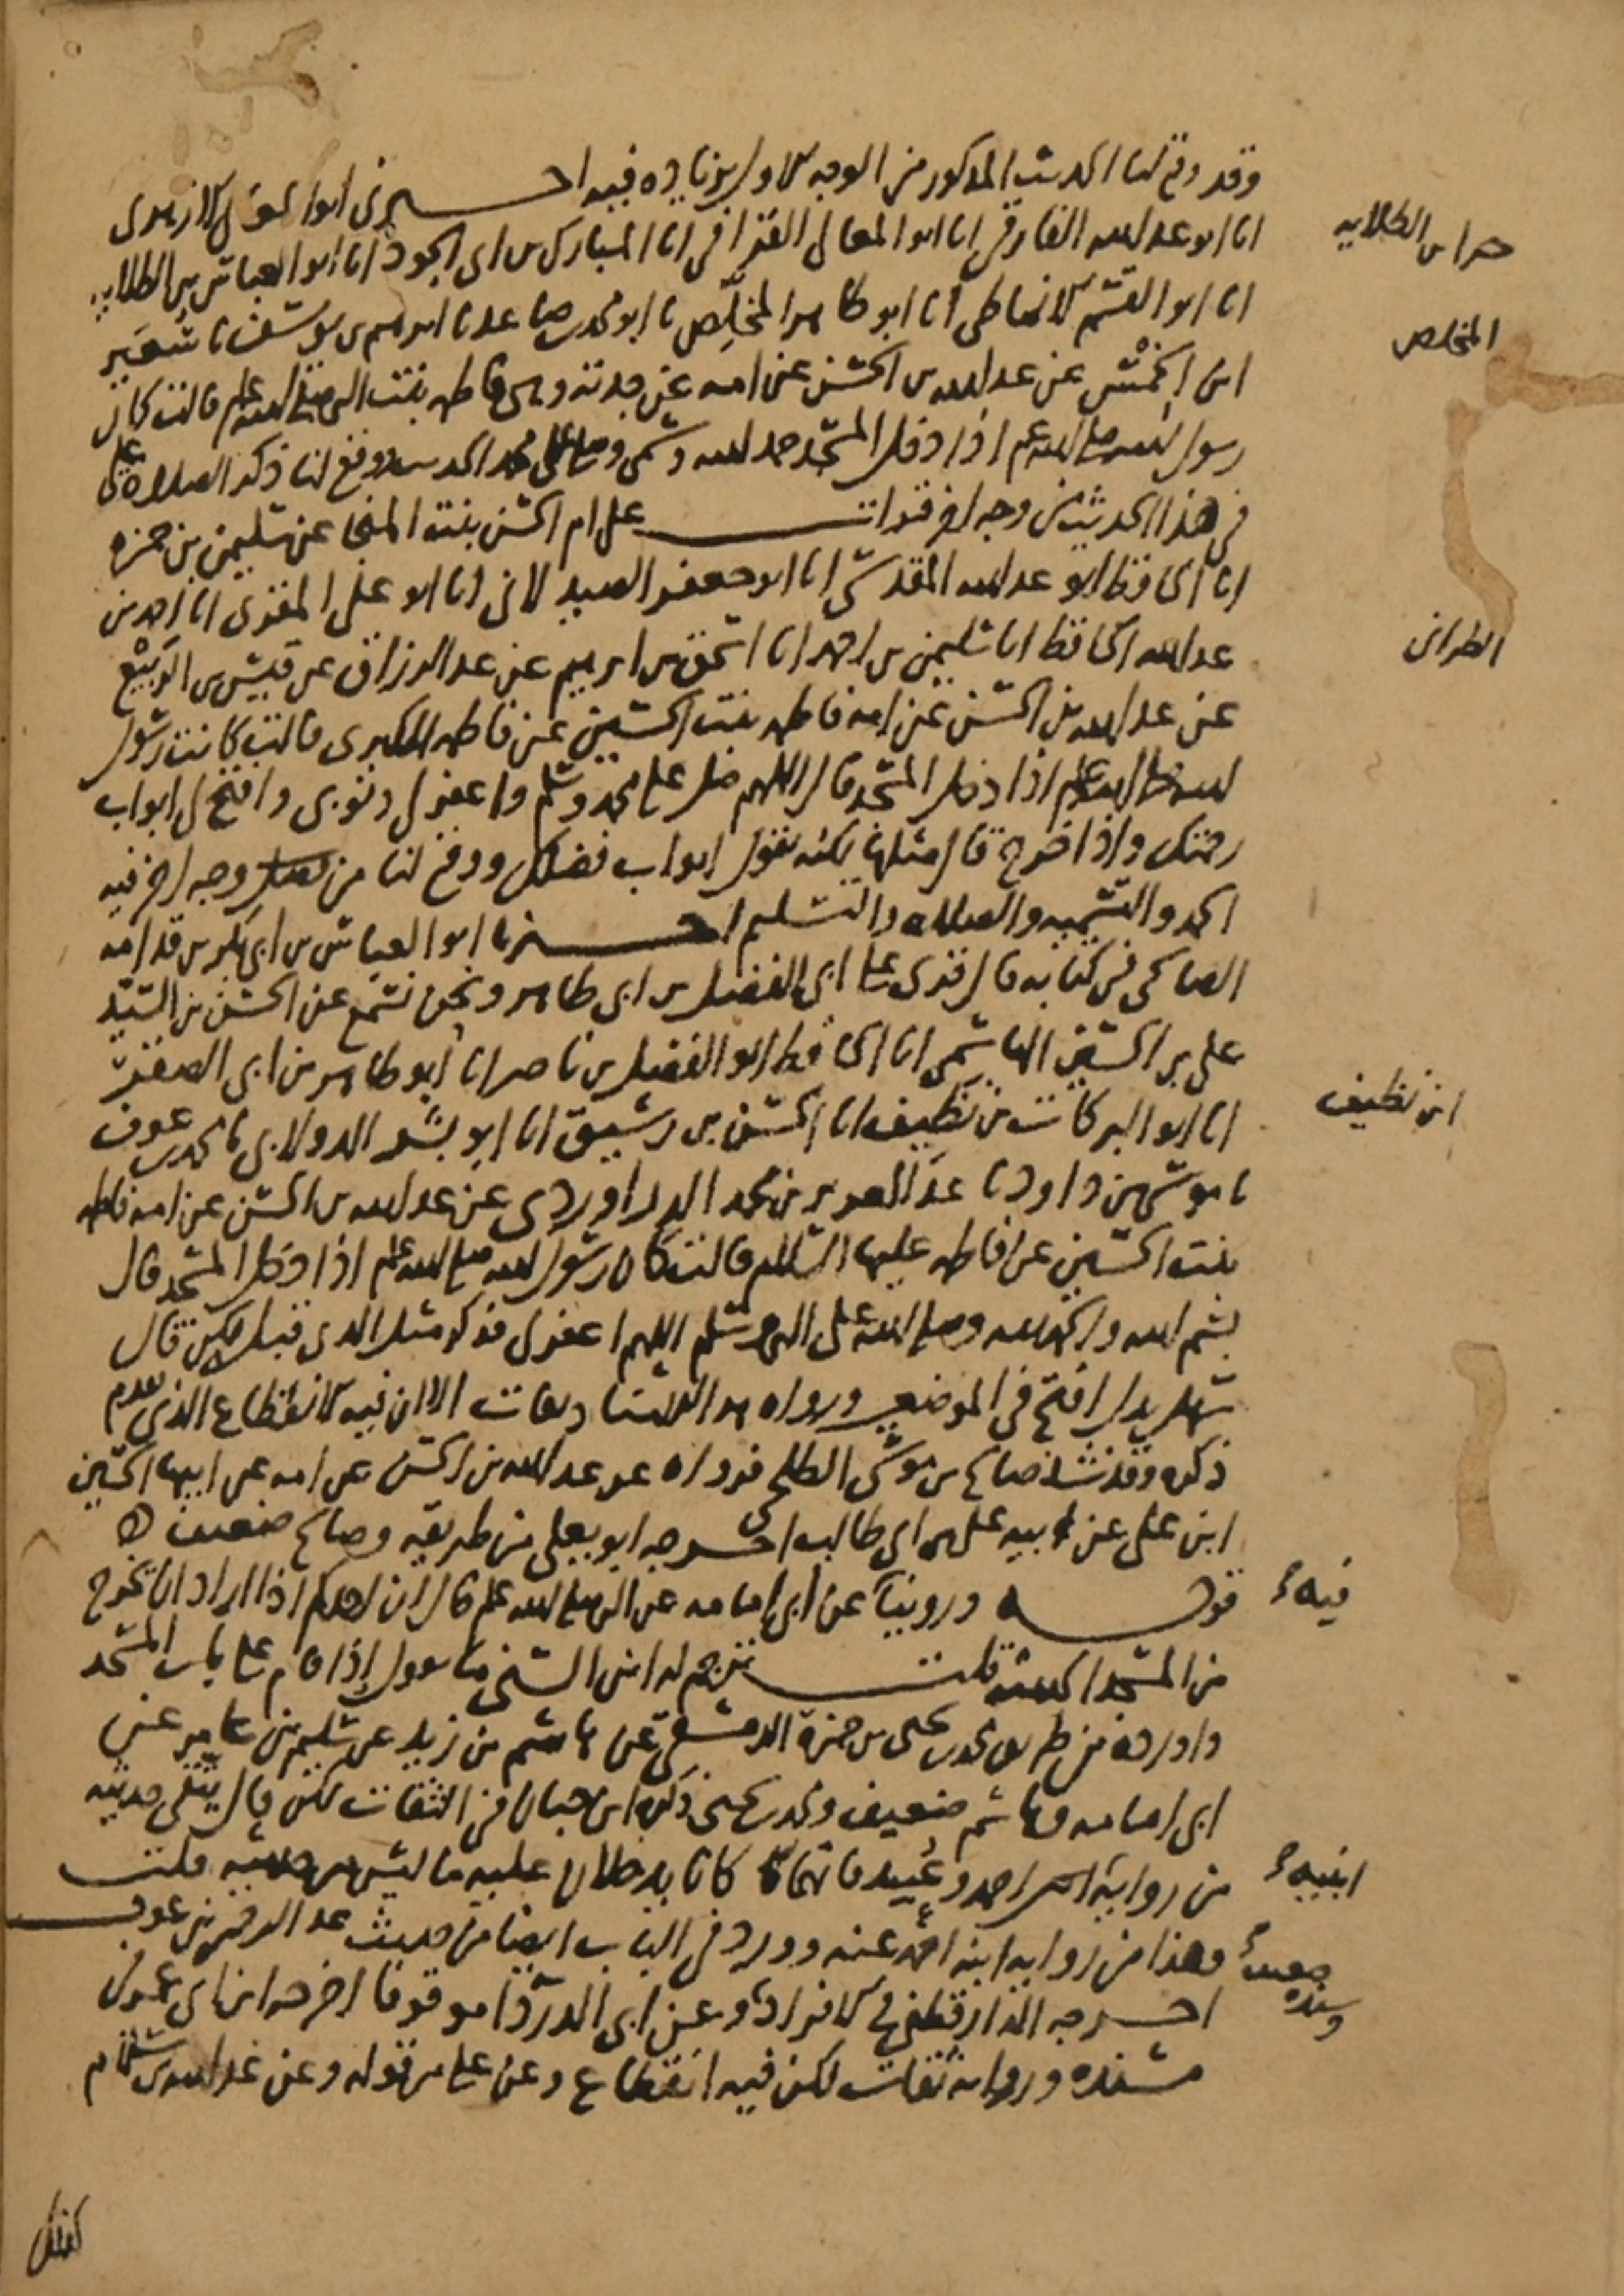 وقد وقع لنا الحديث المذكور من الوجه الاول بزيادة فيه اخبرني ابو
انا ابو عبد الله الفارقي انا ابو المعالي القرافي انا المبارك بن ابي الجود انا ابو العباس بن الطلايه
انا ابو القسم الانماطي انا ابو طاهر المخلّص نا ابو محمد بن صاعد نا ابراهيم بن يوسف نا سُعَير
ابن الخِمْس عن عبد الله بن الحسن عن امه عن جدته وهي فاطمه بنت النبي صلى الله عليه وسلم قالت كان
رسول الله صلى الله عليه وسلم اذا دخل المسجد حمد الله وسمى وصلى على محمد الحديث ووقع لنا ذكر الصلاة عليه
في هذا الحديث من وجه اخر قرات على ام الحسن بنت المنجا عن سليمن بن حمزه
انا الحافظ ابو عبد الله المقدسي انا ابو جعفر الصيدلاني انا ابو علي المقرئ انا احمد بن
عبد الله الحافظ انا سليمن بن احمد انا اسحق بن ابرهيم عن عبد الرزاق عن قيس بن الربيع
عن عبد الله بن الحسن عن امه فاطمه بنت الحسين عن فاطمه الكبرى قالت كانت رسول
الله صلى الله عليه وسلم اذا دخل المسجد قال اللهم صل على محمد وسلم واغفر لي ذنوبي وافتح لي ابواب
رحمتك واذا خرج قال مثلها لكنه يقول ابواب فضلك ووقع لنا من وجه اخر فيه
الحمد والتسميه والصلاه والتسليم اخبرنا ابو العباس بن ابي بكر بن قدامه
الصالحي في كتابه قال قرئ على ابي الفضل بن ابي طاهر ونحن نسمع عن الحسن بن السيد
علي بن الحسين الهاشمي انا الحافظ ابو الفضل بن ناصر انا ابو طاهر بن ابي الصقر
انا ابو البركات بن نظيف انا الحسن بن رشيق انا ابو بشر الدولابي نا محمد بن عوف
نا موسى بن داود نا عبد العزيز بن محمد الدراوردي عن عبد الله بن الحسن عن امه فاطمه
بنت الحسين عن فاطمه عليها السلام قالت كان رسول الله صلى الله عليه وسلم اذا دخل المسجد قال
بسم الله والحمد لله وصلى الله على النبي وسلم اللهم اغفر لي فذكر مثل الذي قبله لكن قال
سهل بدل افتح في الموضعين ورواة هذا الاسناد ثقات الا ان فيه الانقطاع الذي تقدم
ذكره وقد شذ صالح بن موسى الطلحي فرواه عن عبد الله بن الحسن عن امه عن ابيها الحسين
ابن علي عن ابيه علي بن ابي طالب اخرجه ابو يعلى من طريقه وصالح ضعيف ه
قوله وروينا عن ابي امامه عن النبي صلى الله عليه وسلم قال ان احدكم اذا اراد ان يخرج
من المسجد الحديث قلت ترجم له ابن السني ما يقول اذا قام على باب المسجد
واورده من طريق محمد بن يحيى بن حمزة الدمشقي عن هاشم بن زيد عن سليم بن عامر عن
ابي امامه وهاشم ضعيف ومحمد بن يحيى ذكره ابن حبان في الثقات لكن قال يتقى حديثه
من رواية ابني احمد وعُبيد فانهما كانا يدخلان عليه ما ليس من حديثه قلت
وهذا من رواية ابنه احمد عنه وورد في الباب ايضا من حديث عبد الرحمن بن عوف
اخرجه الدارقطني في الافراد وعن ابي الدرداء موقوفا اخرجه ابن ابي عمر في
مسنده ورواته ثقات لكن فيه انقطاع وعن علي من قوله وعن عبد الله بن سلام
الطلايه
المخلص
الطبراني
ابن نظيف
فيه
ابنيه
وسنده ضعيف
كذلك